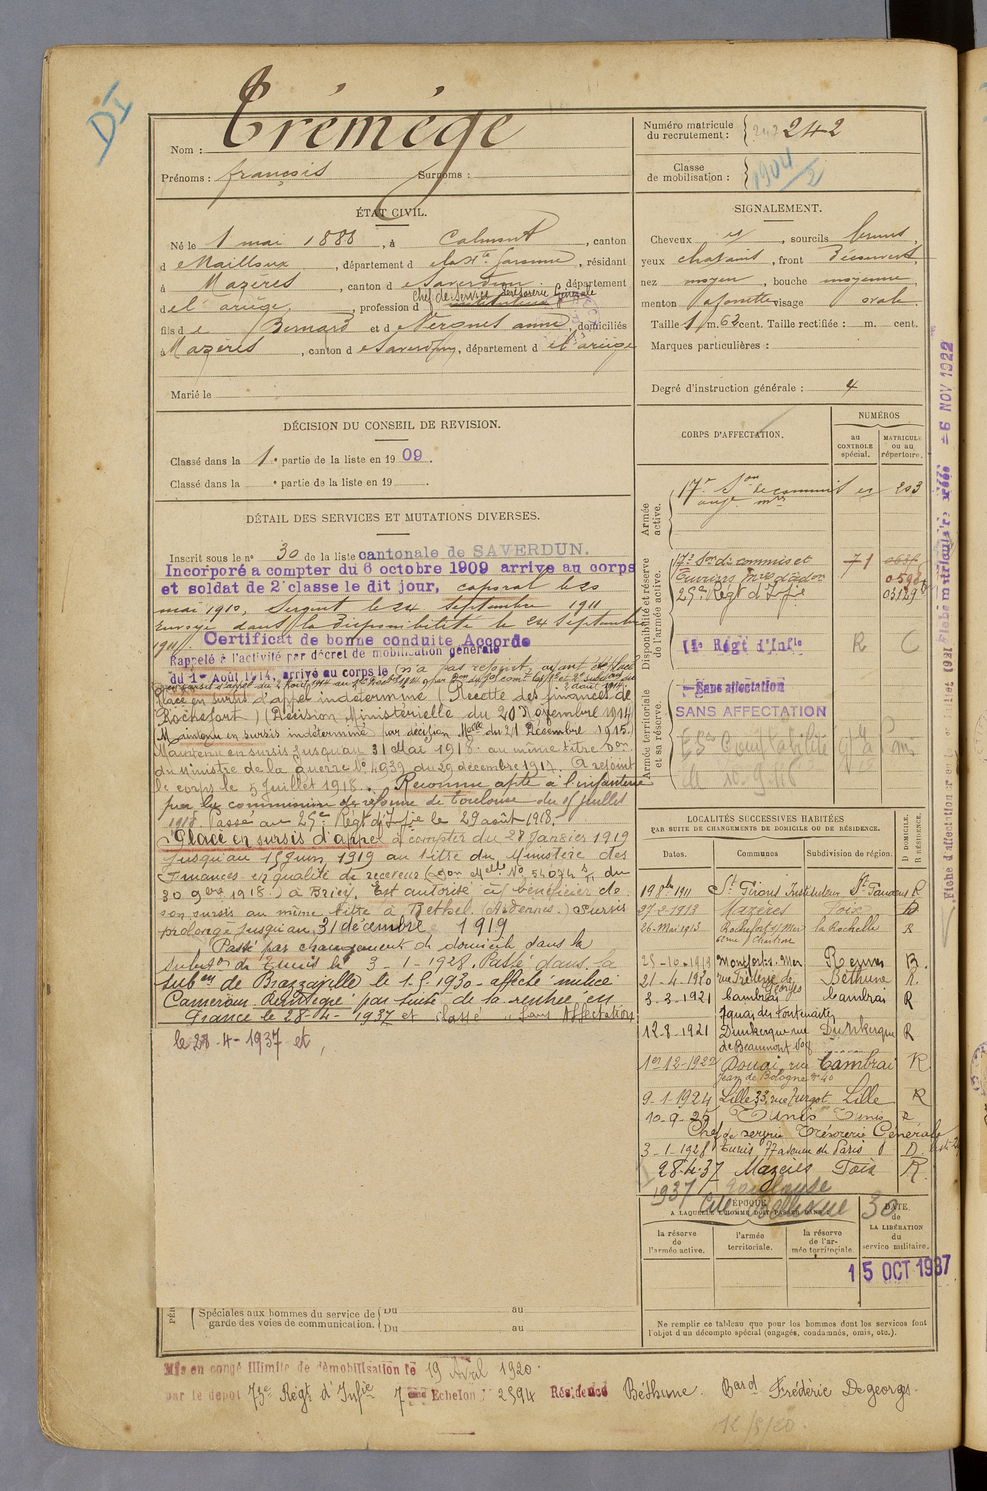 DI
Nom : Trémège
Prénoms : françois Surnoms :
Numéro matricule du recrutement : 242
Classe de mobilisation : 1904/2
ÉTAT CIVIL.
Né le 1 mai 1888, à Calmont, canton
d e Nailloux, département d e la Hte Garonne, résidant
à Mazères, canton d e Saverdun, département
d e l'ariège, profession d chef de service trésorerie Générale
fils d e Bernard et d e Vergnes anne, domiciliés
à Mazères, canton d e Saverdun, département d e l'ariège
Marié le
SIGNALEMENT.
Cheveux et, sourcils bruns,
yeux chatains, front Découvert,
nez moyen, bouche moyenne,
menton à fossette visage ovale
Taille 1 m. 62 cent. Taille rectifiée : m. cent.
Marques particulières :
Degré d'instruction générale : 4
DÉCISION DU CONSEIL DE REVISION.
Classé dans la 1e partie de la liste en 1909.
Classé dans la e partie de la liste en 19 .
CORPS D'AFFECTATION.
NUMÉROS
au CONTROLE spécial.
MATRICULE ou au répertoire.
Armée active.
17e Son de commis et 203
ouv. mres
Disponibilité et réserve de l'armée active.
17e Son de commis et 71
ouvriers mres d'adon 0598
25e Régt d'Infie 03129
Régt d'Infie R C
Armée territoriale et sa réserve.
Sans affectation
SANS AFFECTATION
DÉTAIL DES SERVICES ET MUTATIONS DIVERSES.
Inscrit sous le n° 30 de la liste cantonale de SAVERDUN.
Incorporé a compter du 6 octobre 1909 arrivé au corps
et soldat de 2e classe le dit jour, caporal le 20
mai 1910, Sergent le 24 Septembre 1911
Envoyé dans la Disponibilité le 24 Septembre
1911.
Certificat de bonne conduite Accordé
Rappelé à l'activité par décret de mobilisation générale
du 1er Août 1914, arrivé au corps le (n'a pas rejoint, ayant été placé
2 août 1914
Placé en sursis d'appel indéterminé (Recette des finances de
Rochefort) (Décision Ministérielle du 20 Novembre 1914
Maintenu en sursis indéterminé par décision Melle du 21 Décembre 1915.
Maintenu en sursis jusqu'au 31 Mai 1918 au même titre Don
du Ministre de la guerre No 4939 du 29 décembre 1917. A rejoint
le corps le 5 Juillet 1918. Reconnu apte à l'infanterie
par la commission de réforme de Toulouse du juillet
1918. Passé au 25e Régt d'Infie le 29 août 1918.
Placé en sursis d'appel à compter du 28 Janvier 1919
jusqu'au 15 Juin 1919 au titre du Ministère des
Finances en qualité de receveur (Don Melle No 54074 du
30 9bre 1918.) à Briey. Est autorisé à bénéficier de
son sursis au même titre à Rethel. (Ardennes.) Sursis
prolongé jusqu'au 31 décembre 1919
Passé par changement de domicile dans la
subdon de Tunis le 3-1-1928. Passé dans la
subon de Brazzaville le 1.5.1930 - affecté milice
Cameroun. Réintégré par suite de la rentrée en
France le 28-4-1937 et classé "Sans Affectation
le 28-4-1937 et,
LOCALITÉS SUCCESSIVES HABITÉES
PAR SUITE DE CHANGEMENTS DE DOMICILE OU DE RÉSIDENCE.
Dates. Communes Subdivision de région. D DOMICILE. R RÉSIDENCE.
19 1911 St Girons Instituteur St Gaudens R
27-2-1913 Mazères Foix D
26-Mai 1913 Rochefort s/Mer la Rochelle R
25-10-1919 Montfort s. Mer Rennes R.
21-4-1920 rue Frédéric de Georges Béthune R.
3-3-1921 Cambrai Cambrai R
quai des Fontenaites
12-8-1921 Dunkerque rue Dunkerque R
de Beaumont
1er 12-1922 Douai, rue Cambrai R
Jean de Bologne n° 40
9-1-1924 Lille 33, rue Turgot Lille R
10-9-25 Tunis Tunis R
Chef de service Trésorerie Générale
3-1-1928 Tunis 77 avenue de Paris D
28-4-37 Mazères Foix R
1937 Toulouse
Cité Bellevue 30
ÉPOQUE
A LAQUELLE L'HOMME DOIT PASSER DANS
la réserve de l'armée active.
l'armée territoriale.
la réserve de l'armée territoriale.
DATE de LA LIBÉRATION du service militaire.
15 OCT 1937
Spéciales aux hommes du service de garde des voies de communication.
Du au
Du au
Ne remplir ce tableau que pour les hommes dont les services font
l'objet d'un décompte spécial (engagés, condamnés, omis, etc.).
Mis en congé illimité de démobilisation le 19 Avril 1920.
par le dépôt 73e Régt d'Infie 7me Echelon : 2594 Résidence Béthune. Bard Frédéric Degeorges.